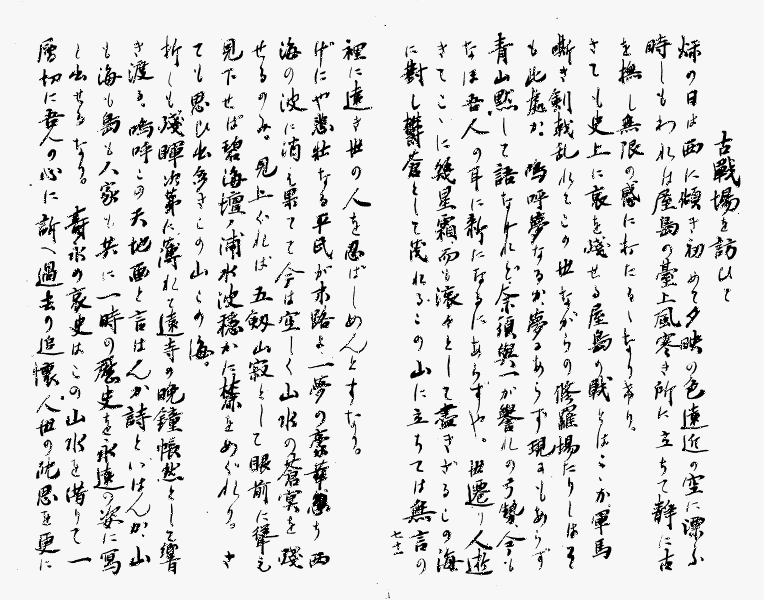 古戰場を訪ひて
秋の日は西に傾き初めて夕映の色遠近の空に漂ふ
時しもわれは屋島の臺上風寒き所に立ちて靜に古
を撫し無限の感に打たるゝなりき。
さても史上に哀を殘せる屋島の戰とはこゝか、軍馬
嘶き劍戟乱れてこの世ながらの修羅場たりしはそ
も此處か。嗚呼夢なるか夢にあらず現にもあらず
青山默して語なけれど余須與一が譽れの弓勢今も
なほ吾人の耳に新になるにあらずや。世遷り人逝
きてこゝに幾星霜而も滾々として盡きざるこの海
に對し鬱蒼として茂れるこの山に立ちては無言の
七十一
裡に遠き世の人を忍ばしめんとすなる。
げにや悲壯なる平氏が末路よ一夢の豪華忽ち西
海の波に消え果てて今は空しく山水の蒼冥を殘
せるのみ。見上ぐれば五劔山寂として眼前に聳え
見下せば碧海壇ノ浦水波穩かに麓をめぐれり。さ
ても思ひ出多きこの山この海。
折しも殘暉次第に薄れて遠寺の晩鐘悵然として響
き渡る、嗚呼この天地画と言はんか詩といはんか、山
も海も島も人家も共に一時の歷史を永遠の姿に寫
し出せるなる。壽永の哀史はこの山水を借りて一
層切に吾人の心に訴へ過去の追懷人世の沈思を更に